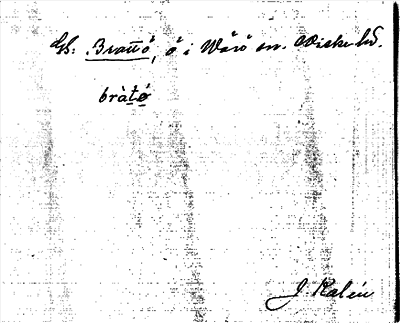 Brattö, ö i Wärö sn. Wiske hd.
bràtö
J. Kalén